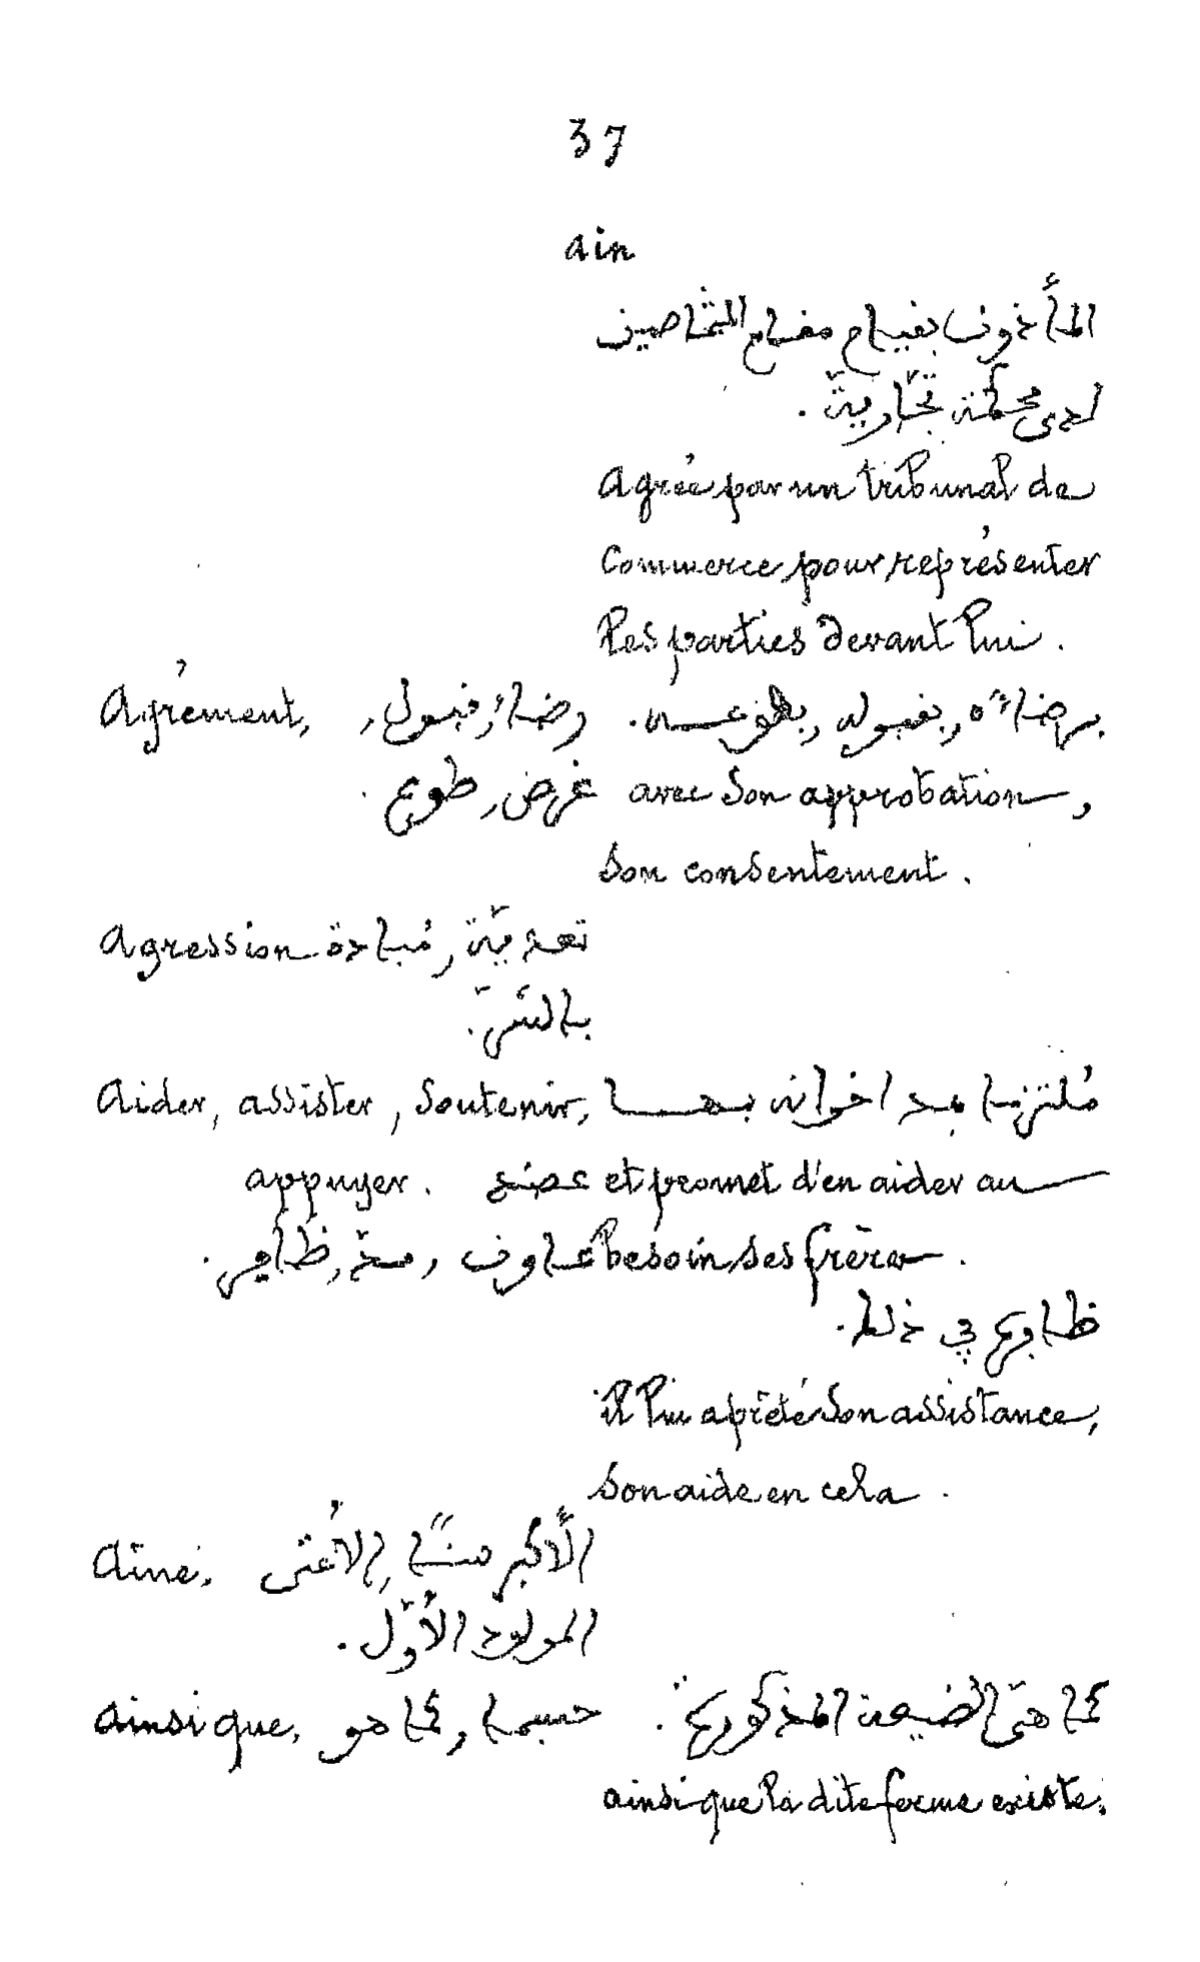 37
ain
المأذون بقيام مقام المتخاصمين
لدى محكمة تجّاريّة .
agréé par un tribunal de
Commerce pour représenter
les parties devant lui .
Agrément, رضاء, قبول, برضائه, بقبوله, بطوعه .
غرض, طوع . avec son approbation,
son consentement .
Agression تعديّة, مُبادة
بالشّرّ .
Aider, assister, soutenir, مُلتزما بمد اخوانه بها
appuyer . عضد et promet d'en aider au
عاون, مدّ, ظاهر . besoin ses frères .
ظاهره في ذلك .
il lui a prêté son assistance,
son aide en cela .
Aîné, الأكبر سنًّا, الأعتى
المولود الأوّل .
ainsi que, حسبما, كما هو . كما هي الضيعة المذكورة
ainsi que la dite ferme existe.